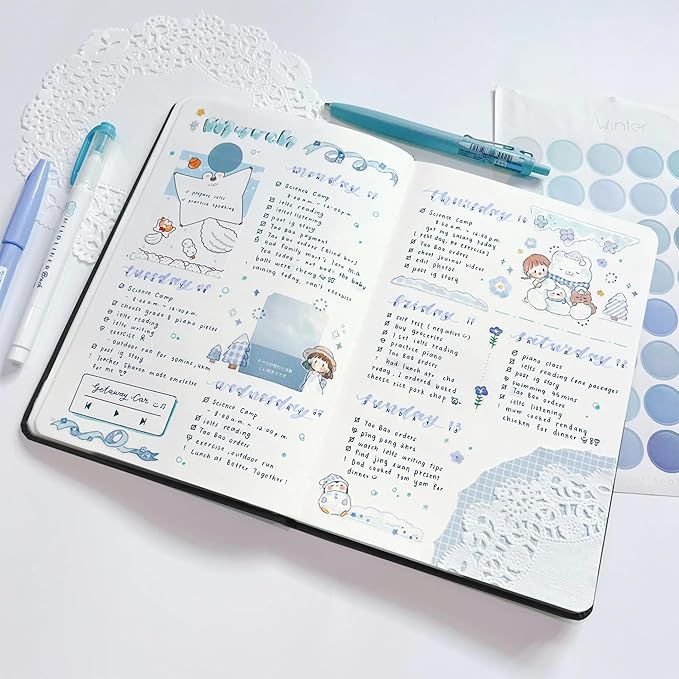 March
monday 07
prepare ielts
practice speaking
Science Camp
8.00am - 12.00p.m.
ielts reading
ielts listening
post ig story
Tao Bao payment
Tao Bao orders
God family
Today
balls were chewy
raining today, can't exercise
tuesday 08
Science Camp
8.00am - 12.00p.m.
choose grade 8 piano pieces
ielts reading
ielts writing
exercise
outdoor run for 30mins, 4km
post ig story
Teacher Sharon made omelette
for me
Getaway Car
すべての終わりは新
しい始まりです
wednesday 09
Science Camp
8.00am - 12.00p.m.
ielts reading
Tao Bao orders
exercise, outdoor run
Lunch at Better Together!
thursday 10
Science Camp
8.00am - 12.00p.m.
got my salary today
rest day, no exercise
Tao Bao orders
shoot journal videos
edit photos
post ig story
friday 11
self test (negative)
buy groceries
1 set ielts reading
practice piano
Tao Bao orders
had lunch at
today, I ordered baked
cheese rice pork chop
saturday 12
piano class
ielts reading (one passage)
post ig story
swimming 46mins
Tao Bao orders
ielts listening
mum cooked rendang
chicken for dinner
sunday 13
Tao Bao orders
ping pong 2hrs
watch ielts writing tips
find jing xuan present
ielts reading
Dad cooked tom yam for
dinner
MILDLINER
Winter